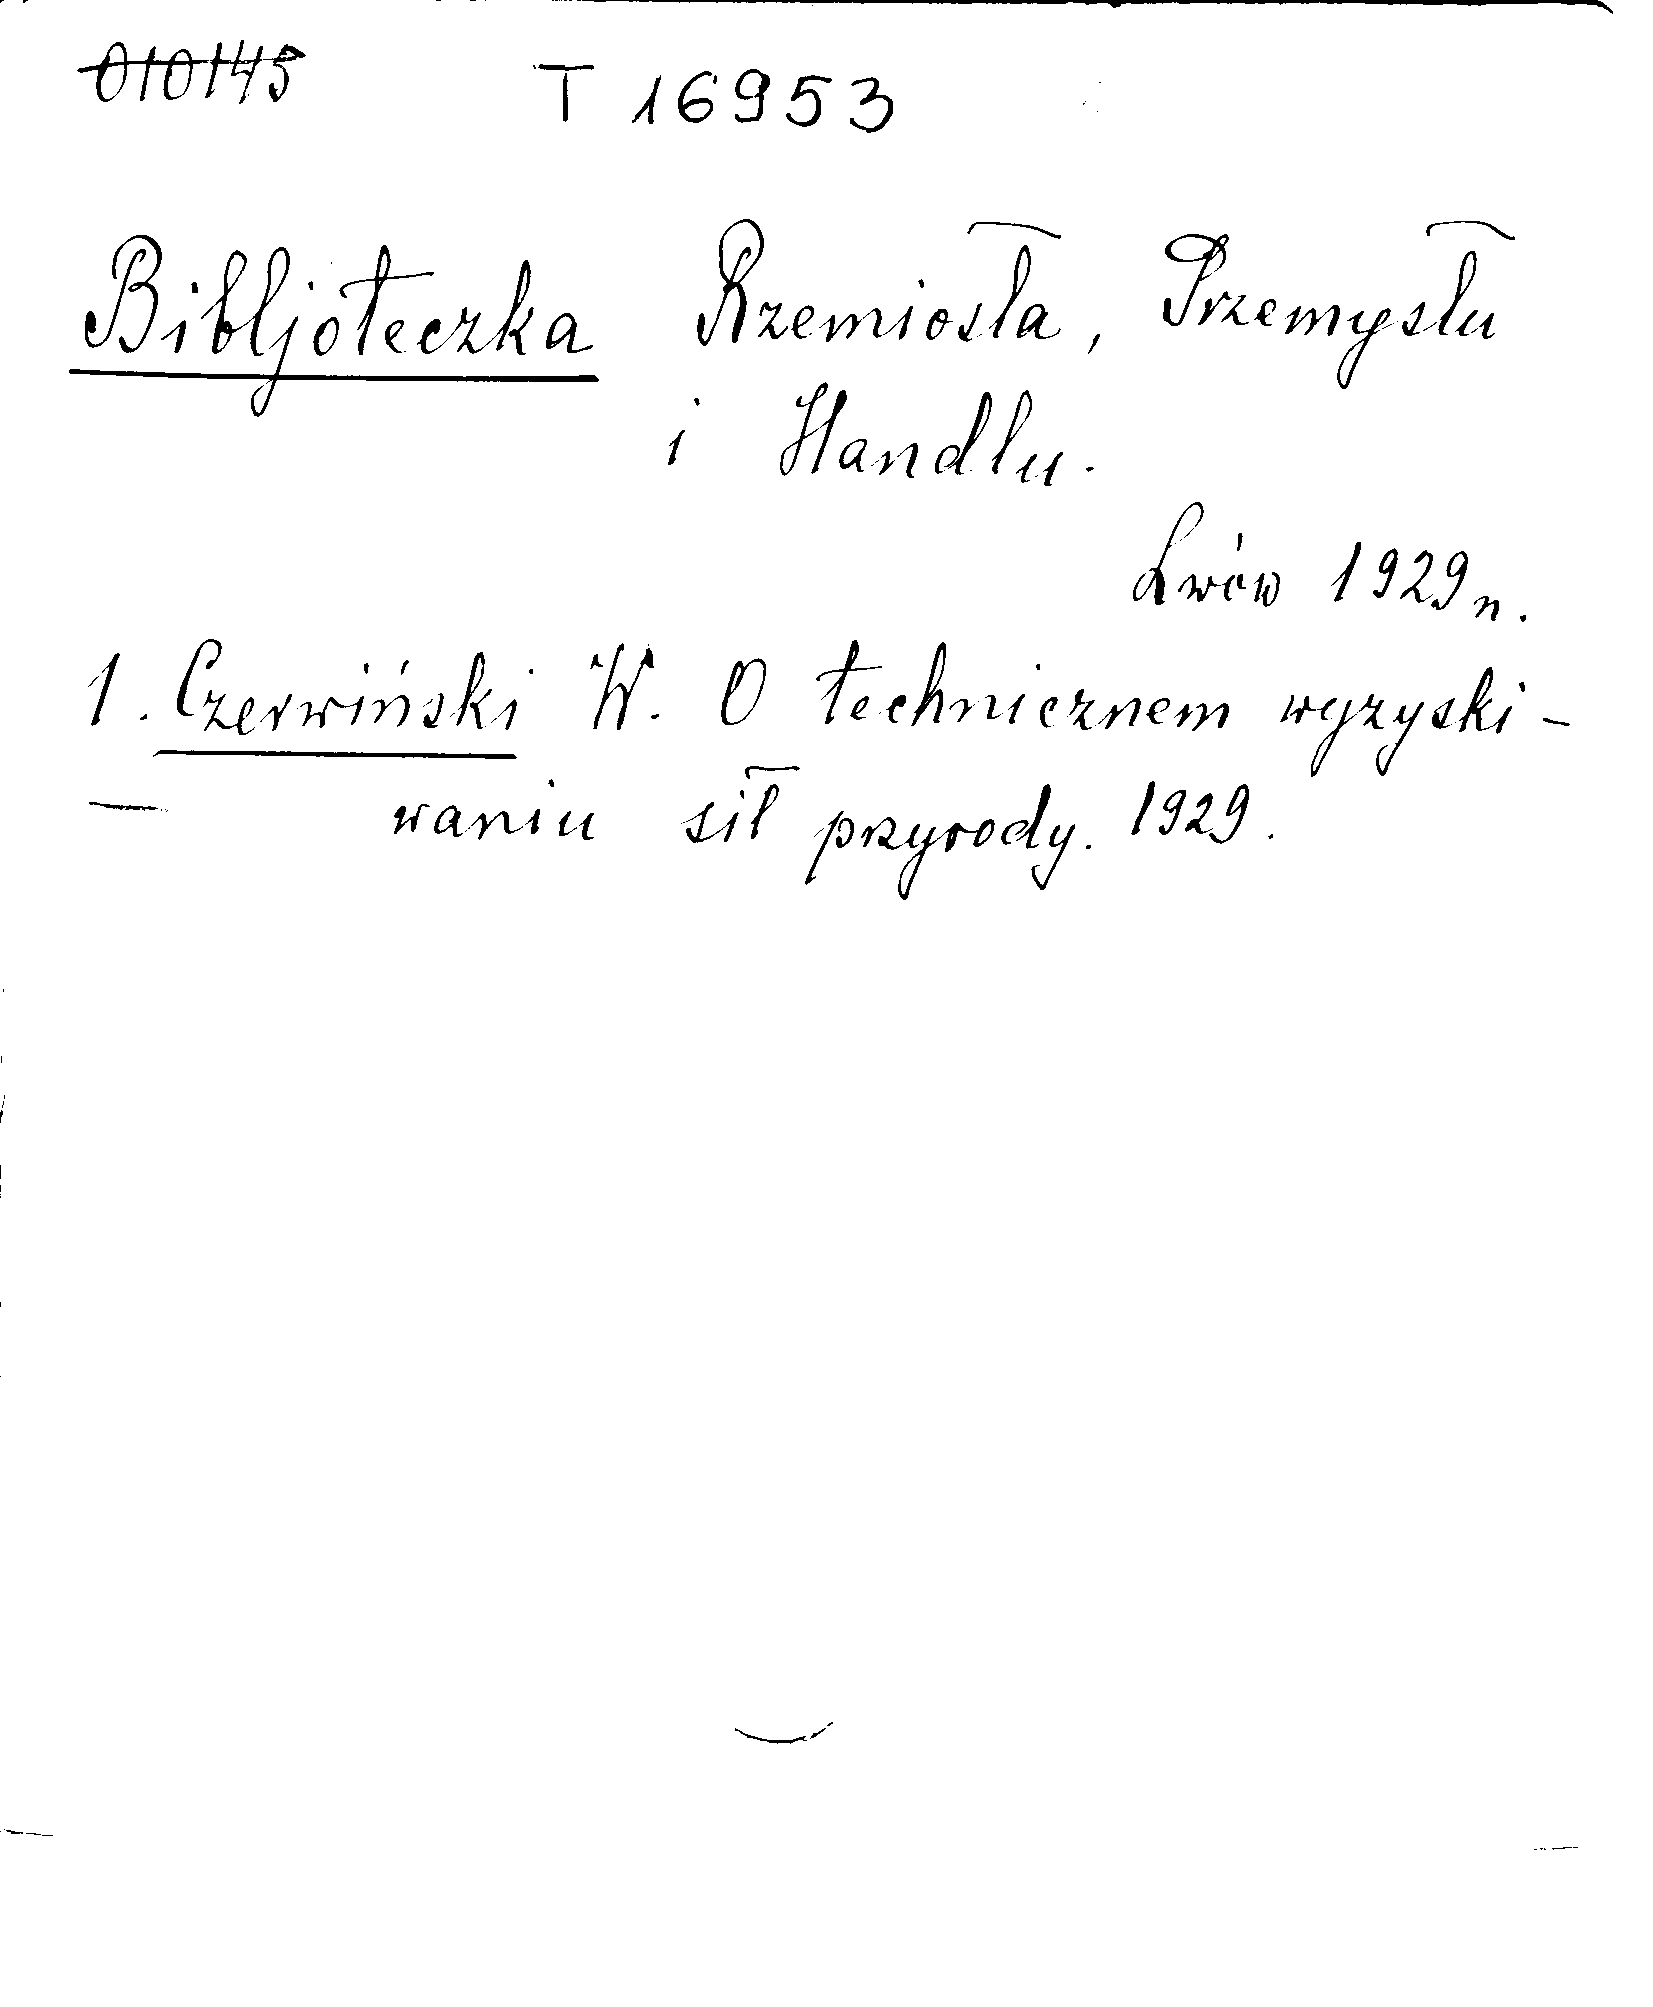 010145 T 16953
Bibljoteczka Rzemiosła, Przemysłu
i Handlu.
Lwów 1929 n.
1. Czerwiński W. O technicznem wyzyski-
— waniu sił przyrody. 1929.